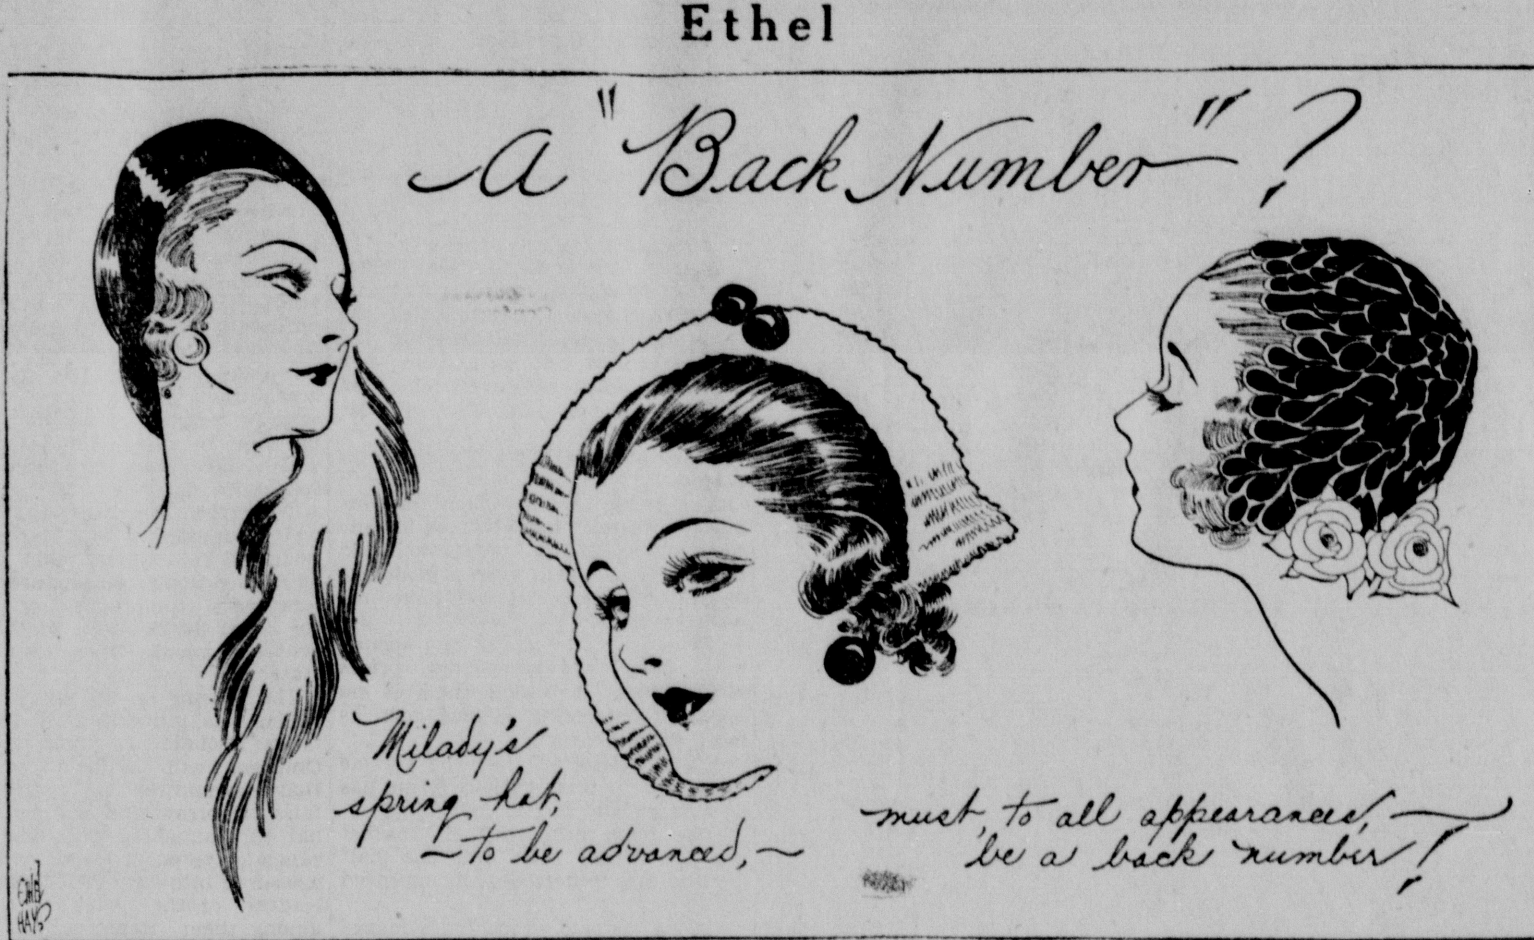 Ethel
A "Back Number"?
Milady's
spring hat,
- to be advanced, -
must, to all appearances, -
be a back number!
ETHEL
HAYS